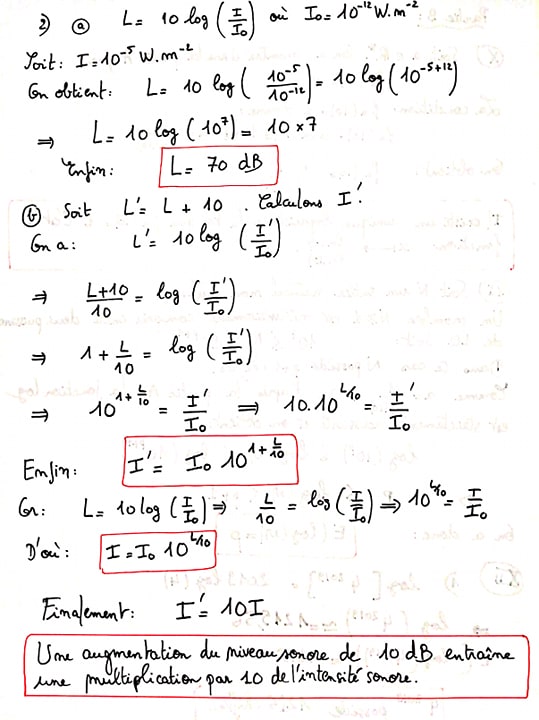 2) ⓐ L = 10 log (I/I₀) où I₀ = 10⁻¹² W.m⁻²
Soit: I = 10⁻⁵ W.m⁻²
On obtient: L = 10 log (10⁻⁵/10⁻¹²) = 10 log (10⁻⁵⁺¹²)
⇒ L = 10 log (10⁷) = 10 × 7
Enfin: L = 70 dB
ⓑ Soit L' = L + 10 . Calculons I'.
On a: L' = 10 log (I'/I₀)
⇒ (L+10)/10 = log (I'/I₀)
⇒ 1 + L/10 = log (I'/I₀)
⇒ 10^(1+L/10) = I'/I₀ ⇒ 10.10^(L/10) = I'/I₀
Enfin: I' = I₀ 10^(1+L/10)
Or: L = 10 log (I/I₀) ⇒ L/10 = log (I/I₀) ⇒ 10^(L/10) = I/I₀
D'où: I = I₀ 10^(L/10)
Finalement: I' = 10I
Une augmentation du niveau sonore de 10 dB entraîne
une multiplication par 10 de l'intensité sonore.